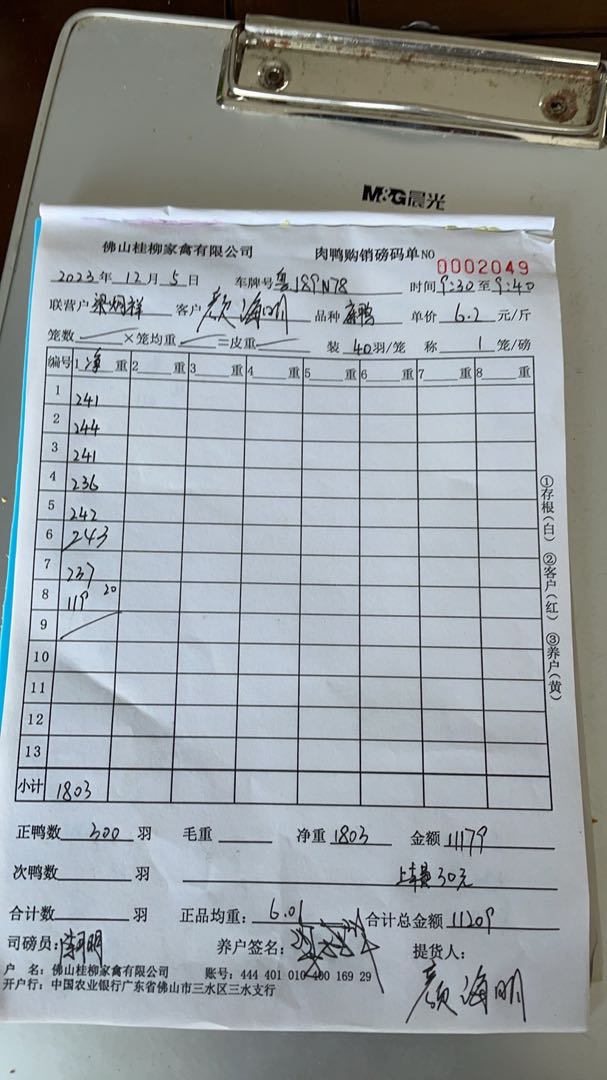 M&G晨光
佛山桂柳家禽有限公司 肉鸭购销磅码单NO 0002049
2023年12月5日 车牌号粤J89N78 时间9:30至9:40
联营户梁炳祥 客户颜海明 品种麻鸭 单价6.2元/斤
笼数 ×笼均重 =皮重 装40羽/笼 称1笼/磅
编号 1净重 2 重 3 重 4 重 5 重 6 重 7 重 8 重
1 241
2 244
3 241
4 236
5 242
6 243
7 237
8 119 20
9
10
11
12
13
小计 1803
①存根(白) ②客户(红) ③养户(黄)
正鸭数300羽 毛重 净重1803 金额11179
次鸭数 羽 上车费30元
合计数 羽 正品均重:6.01 合计总金额11209
司磅员: 养户签名: 提货人:
颜海明
户 名:佛山桂柳家禽有限公司 账号:444 401 010 400 169 29
开户行:中国农业银行广东省佛山市三水区三水支行